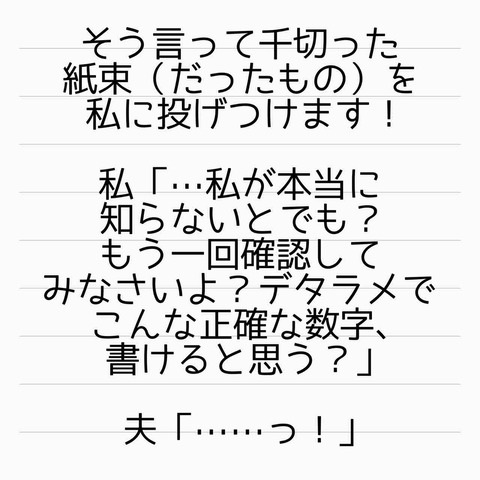 そう言って千切った
紙束（だったもの）を
私に投げつけます！
私「…私が本当に
知らないとでも？
もう一回確認して
みなさいよ？デタラメで
こんな正確な数字、
書けると思う？」
夫「……っ！」